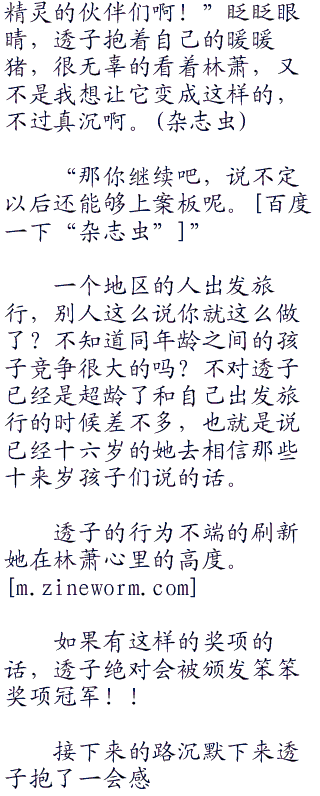 精灵的伙伴们啊！”眨眨眼
睛，透子抱着自己的暖暖
猪，很无辜的看着林萧，又
不是我想让它变成这样的，
不过真沉啊。(杂志虫)
“那你继续吧，说不定
以后还能够上案板呢。[百度
一下“杂志虫”]”
一个地区的人出发旅
行，别人这么说你就这么做
了？不知道同年龄之间的孩
子竞争很大的吗？不对透子
已经是超龄了和自己出发旅
行的时候差不多，也就是说
已经十六岁的她去相信那些
十来岁孩子们说的话。
透子的行为不端的刷新
她在林萧心里的高度。
[m.zineworm.com]
如果有这样的奖项的
话，透子绝对会被颁发笨笨
奖项冠军！！
接下来的路沉默下来透
子抱了一会感